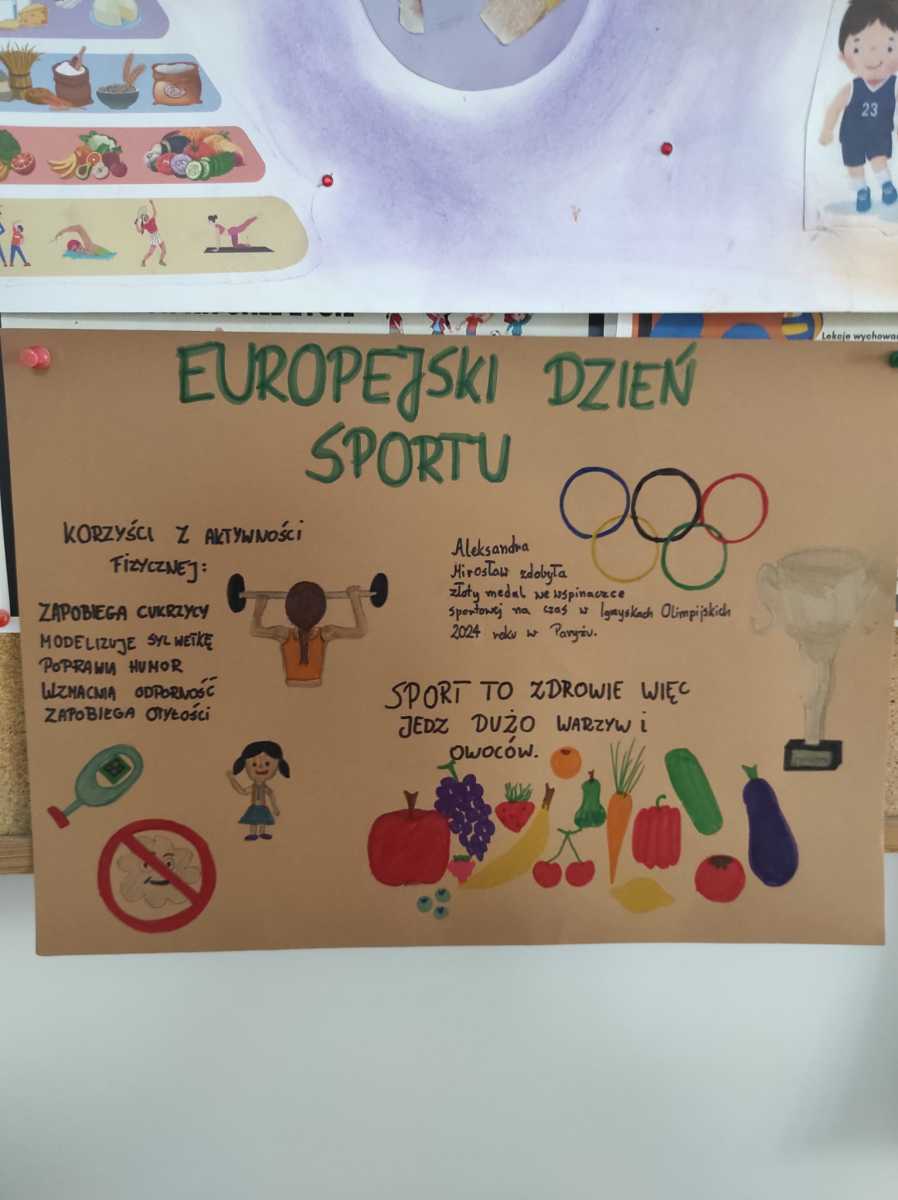 23
Lekcje
EUROPEJSKI DZIEŃ
SPORTU
KORZYŚCI Z AKTYWNOŚCI
FIZYCZNEJ:
ZAPOBIEGA CUKRZYCY
MODELIZUJE SYLWETKĘ
POPRAWIA HUMOR
WZMACNIA ODPORNOŚĆ
ZAPOBIEGA OTYŁOŚCI
Aleksandra
Mirosław zdobyła
złoty medal we wspinaczce
sportowej na czas w Igrzyskach Olimpijskich
2024 roku w Paryżu.
SPORT TO ZDROWIE WIĘC
JEDZ DUŻO WARZYW i
OWOCÓW.